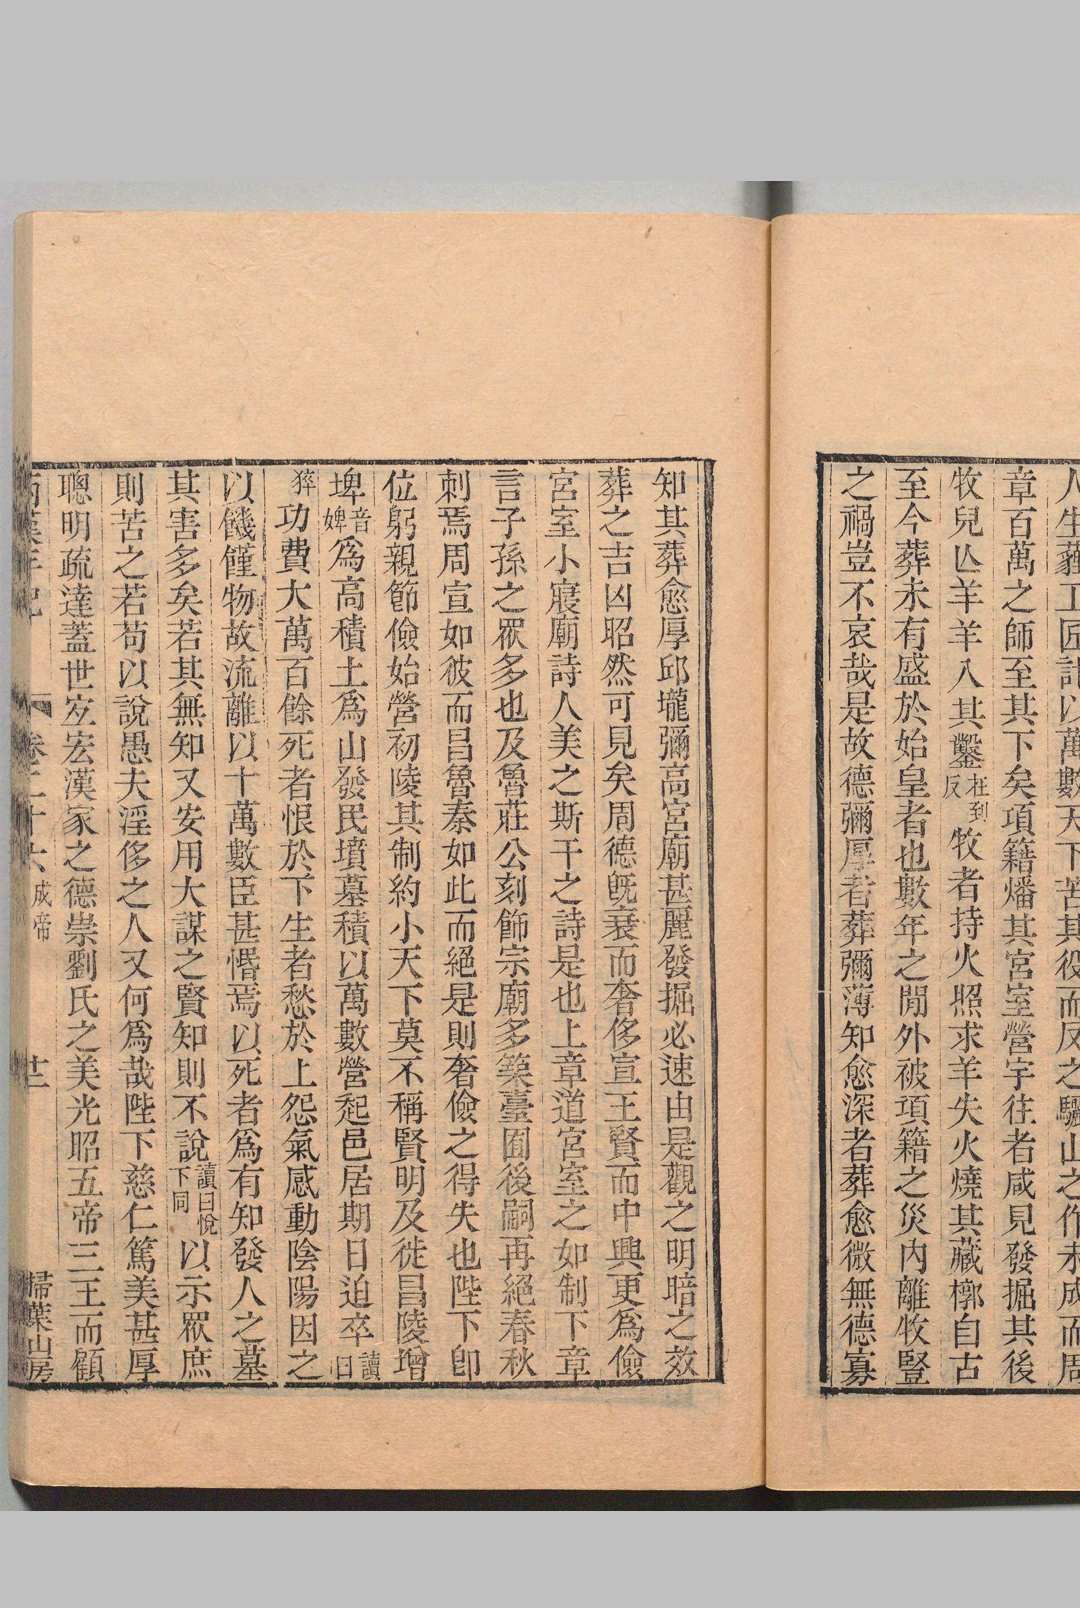 人生薶工匠計以萬數天下苦其役而反之驪山之作未成而周
章百萬之師至其下矣項籍燔其宮室營宇往者咸見發掘其後
牧兒亾羊羊入其鑿在到反牧者持火照求羊失火燒其藏槨自古
至今葬未有盛於始皇者也數年之閒外被項籍之災內離牧豎
之禍豈不哀哉是故德彌厚者葬彌薄知愈深者葬愈微無德寡
知其葬愈厚邱壠彌高宮廟甚麗發掘必速由是觀之明暗之效
葬之吉凶昭然可見矣周德旣衰而奢侈宣王賢而中興更爲儉
宮室小寢廟詩人美之斯干之詩是也上章道宮室之如制下章
言子孫之眾多也及魯莊公刻飾宗廟多築臺囿後嗣再絕春秋
刺焉周宣如彼而昌魯秦如此而絕是則奢儉之得失也陛下卽
位躬親節儉始營初陵其制約小天下莫不稱賢明及徙昌陵增
埤音婢爲高積土爲山發民墳墓積以萬數營起邑居期日迫卒讀曰
猝功費大萬百餘死者恨於下生者愁於上怨氣感動陰陽因之
以饑饉物故流離以十萬數臣甚惽焉以死者爲有知發人之墓
其害多矣若其無知又安用大謀之賢知則不說讀曰悅下同以示眾庶
則苦之若苟以說愚夫淫侈之人又何爲哉陛下慈仁篤美甚厚
聰明疏達蓋世宐宏漢家之德崇劉氏之美光昭五帝三王而顧
兩漢年紀 卷二十六 成帝 廿二 掃葉山房